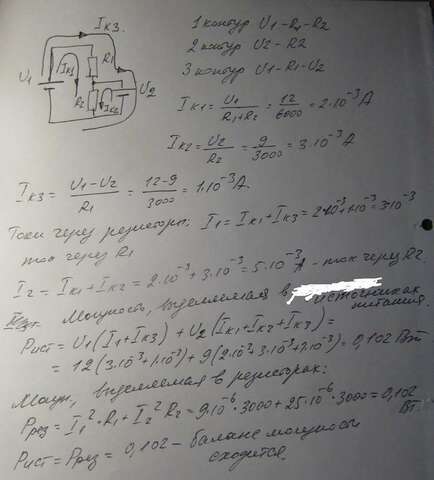 Iк3.
U1
Iк1
R1
R2
Iк2
U2
1 контур U1-R1-R2
2 контур U2-R2
3 контур U1-R1-U2
Iк1 = U1/(R1+R2) = 12/6000 = 2·10⁻³ A
Iк2 = U2/R2 = 9/3000 = 3·10⁻³ A
Iк3 = (U1-U2)/R1 = (12-9)/3000 = 1·10⁻³ A.
Токи через резисторы: I1 = Iк1 + Iк3 = 2·10⁻³ + 1·10⁻³ = 3·10⁻³
ток через R1
I2 = Iк1 + Iк2 = 2·10⁻³ + 3·10⁻³ = 5·10⁻³ A - ток через R2.
Мощность, выделяемая в источниках
питания.
Pист = U1(I1+Iк3) + U2(Iк1+Iк2+Iк3) =
= 12(3·10⁻³+1·10⁻³) + 9(2·10⁻³+3·10⁻³+1·10⁻³) = 0,102 Вт
Мощн, выделяемая в резисторах:
Pрез = I1²·R1 + I2² R2 = 9·10⁻⁶·3000 + 25·10⁻⁶·3000 = 0,102
Вт.
Pист = Pрез = 0,102 - баланс мощность
сходится.